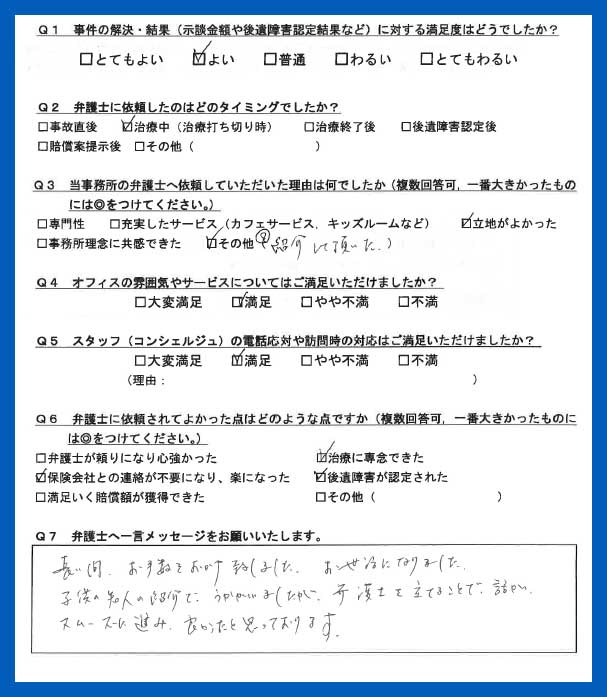 Q1 事件の解決・結果（示談金額や後遺障害認定結果など）に対する満足度はどうでしたか？
□とてもよい ☑よい □普通 □わるい □とてもわるい
Q2 弁護士に依頼したのはどのタイミングでしたか？
□事故直後 ☑治療中（治療打ち切り時） □治療終了後 □後遺障害認定後
□賠償案提示後 □その他（ ）
Q3 当事務所の弁護士へ依頼していただいた理由は何でしたか（複数回答可，一番大きかったもの
には◎をつけてください。）
□専門性 □充実したサービス（カフェサービス，キッズルームなど） ☑立地がよかった
□事務所理念に共感できた ☑その他（紹介して頂いた。）
Q4 オフィスの雰囲気やサービスについてはご満足いただけましたか？
□大変満足 ☑満足 □やや不満 □不満
Q5 スタッフ（コンシェルジュ）の電話応対や訪問時の対応はご満足いただけましたか？
□大変満足 ☑満足 □やや不満 □不満
（理由： ）
Q6 弁護士に依頼されてよかった点はどのような点ですか（複数回答可，一番大きかったものに
は◎をつけてください。）
□弁護士が頼りになり心強かった ☑治療に専念できた
☑保険会社との連絡が不要になり、楽になった ☑後遺障害が認定された
□満足いく賠償額が獲得できた □その他（ ）
Q7 弁護士へ一言メッセージをお願いいたします。
長い間、お手数をおかけ致しました。お世話になりました。
子供の知人の紹介で、うかがいましたが、弁護士を立てることで、話が、
スムーズに進み、良かったと思っております。